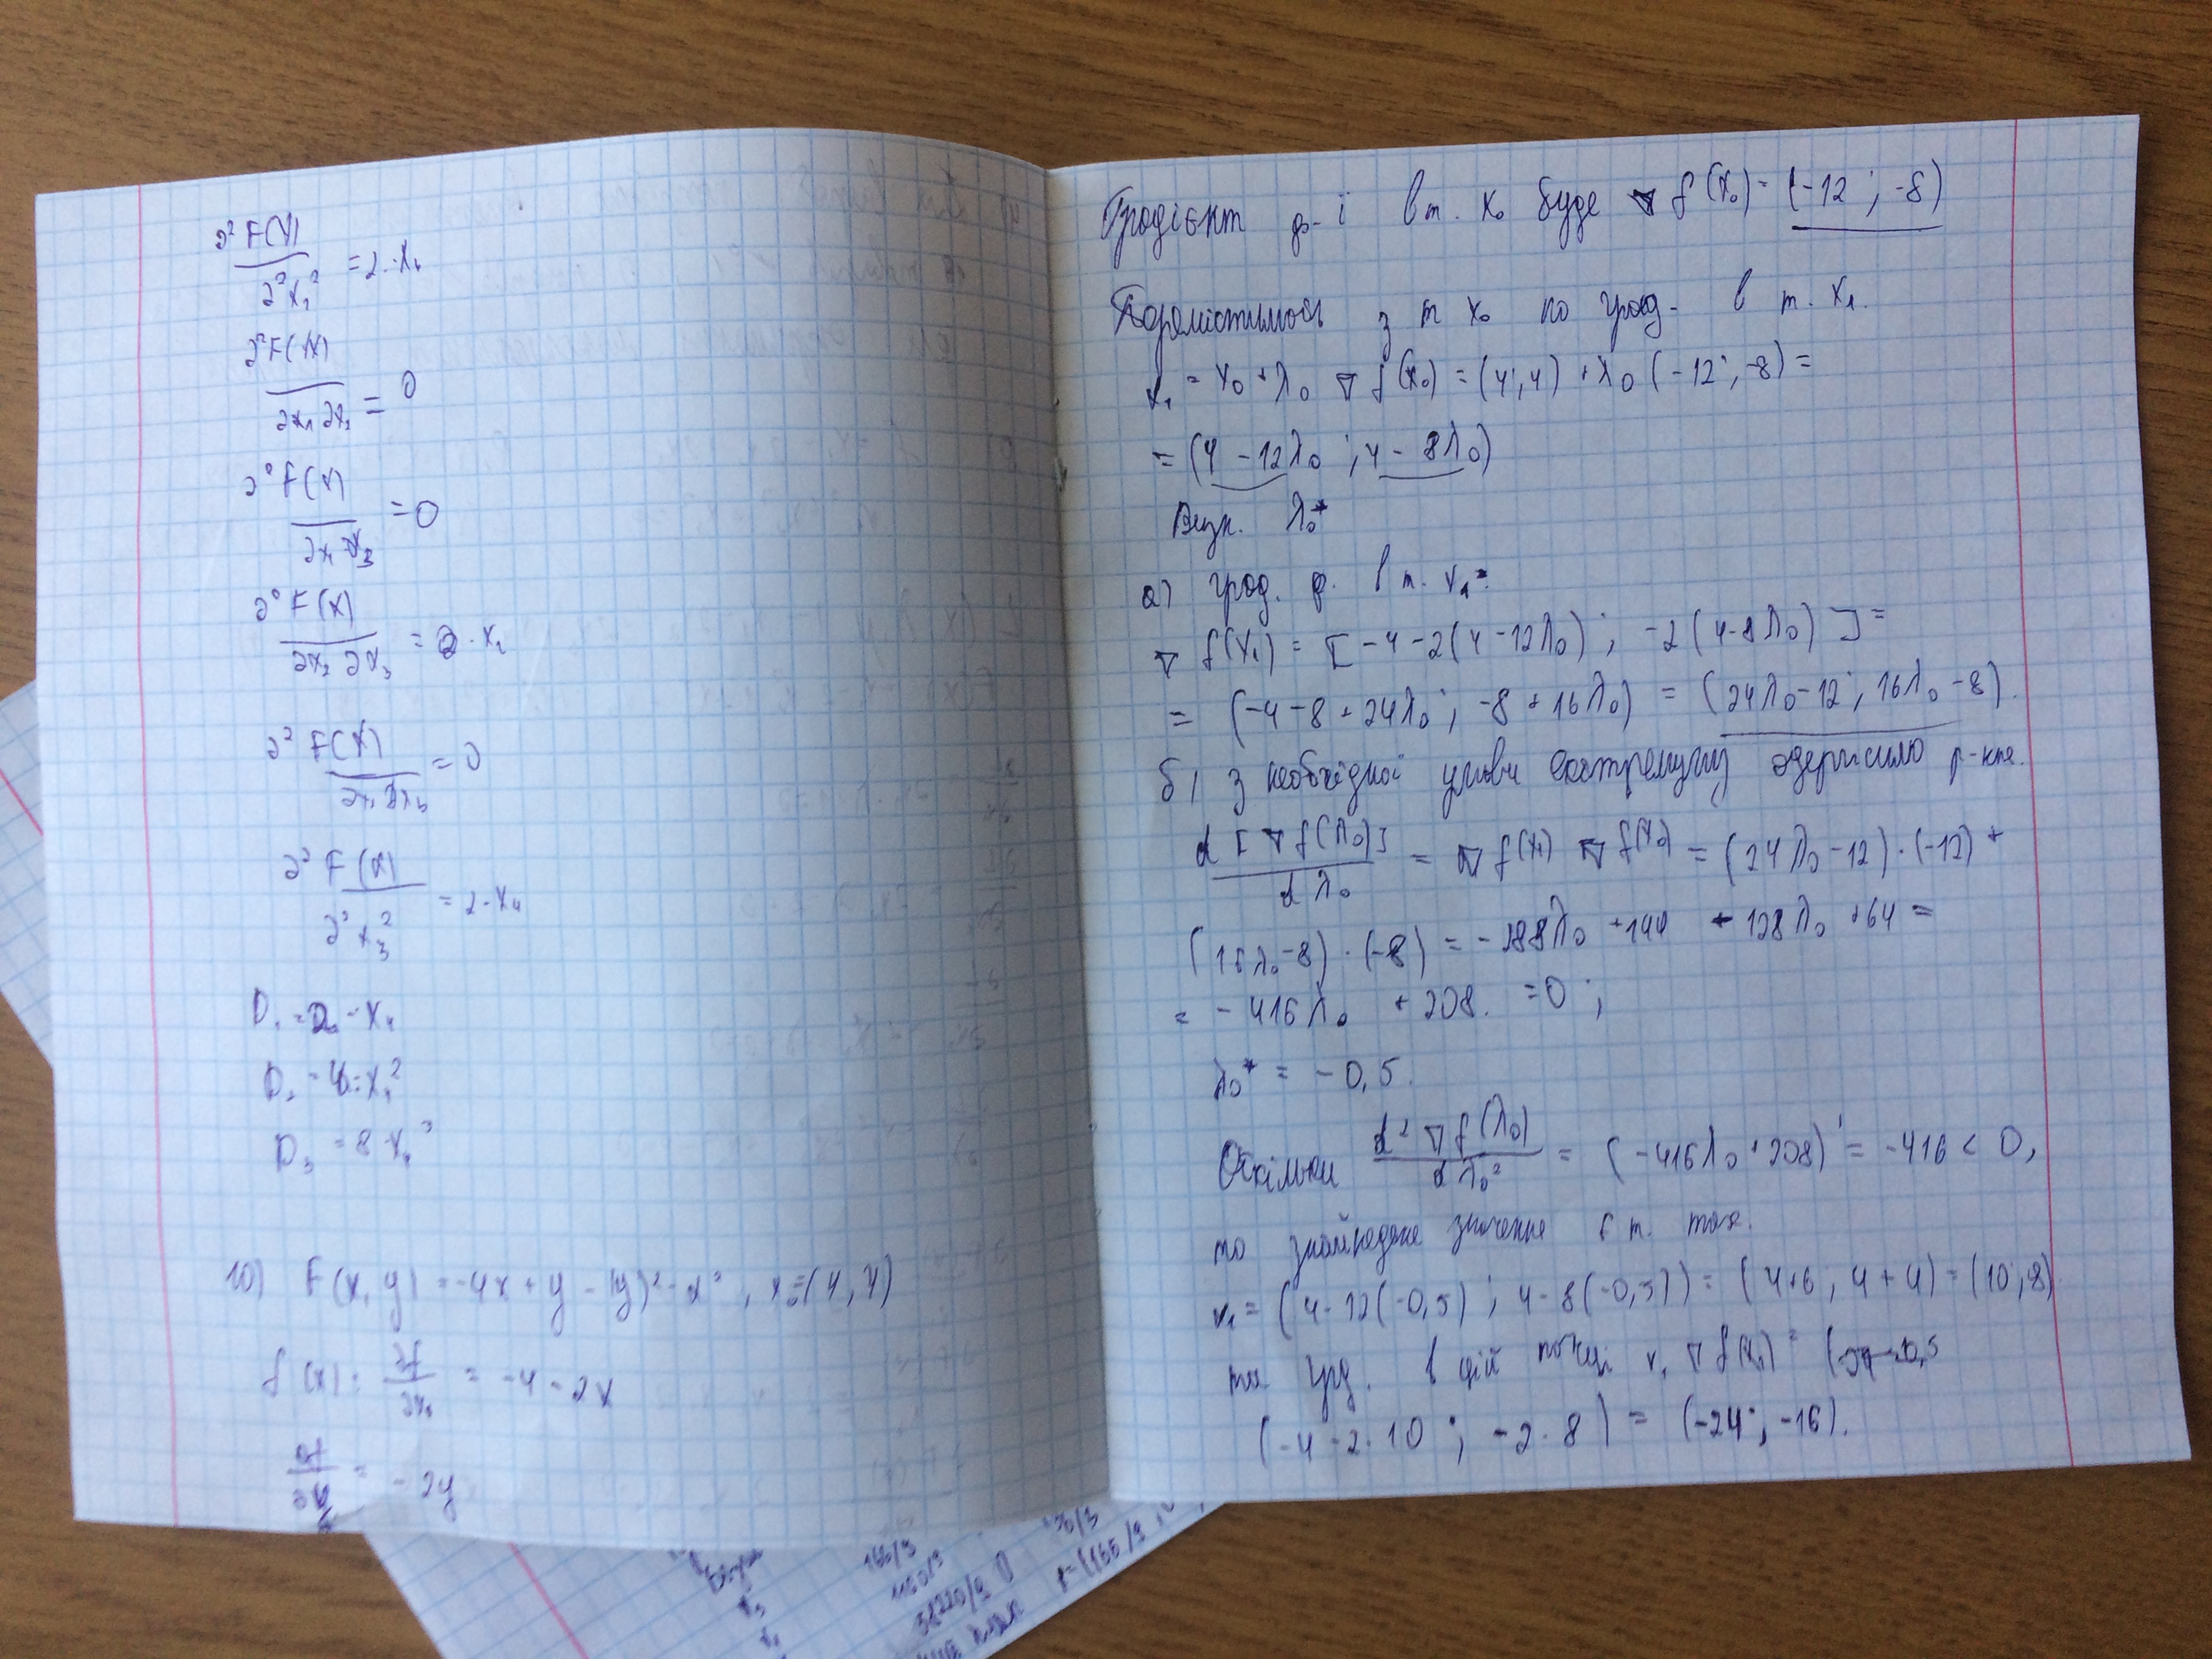 ∂²F(x)/∂²x₁² = 2·x₁
∂²F(x)/∂x₁∂x₂ = 0
∂²F(x)/∂x₁∂x₃ = 0
∂²F(x)/∂x₂∂x₃ = 2·x₂
∂²F(x)/∂x₁∂x₃ = 0
∂²F(x)/∂²x₃² = 2·x₄
D₁ = 2·x₁
D₂ = 4·x₁²
D₃ = 8·x₁³
10) F(x, y) = -4x + y - (y)² - x², x₀=(4, 4)
f(x): ∂f/∂x₁ = -4 - 2x
∂f/∂y = -2y
Градієнт ф-ї в т. x₀ буде ∇f(x₀) = (-12; -8)
Перемістимось з т x₀ по град. в т. x₁.
x₁ = x₀ + λ₀ ∇f(x₀) = (4; 4) + λ₀(-12; -8) =
= (4 - 12λ₀; 4 - 8λ₀)
Визн. λ₀*
а) град. ф. в т. x₁:
∇f(x₁) = [-4-2(4-12λ₀); -2(4-8λ₀)] =
= (-4-8+24λ₀; -8+16λ₀) = (24λ₀-12; 16λ₀-8).
б) з необхідної умови екстремуму одержимо р-нне.
d[∇f(λ₀)]/dλ₀ = ∇f(x₁) ∇f(x₀) = (24λ₀-12)·(-12)+
(16λ₀-8)·(-8) = -288λ₀ + 144 - 128λ₀ + 64 =
= -416λ₀ + 208. = 0;
λ₀* = -0,5.
Оскільки d²∇f(λ₀)/dλ₀² = (-416λ₀+208)' = -416 < 0,
то знайдене значення є т. max.
x₁ = (4-12(-0,5); 4-8(-0,5)) = (4+6; 4+4) = (10; 8)
та град. в цій точці x₁ ∇f(x₁) =
(-4-2·10; -2·8) = (-24; -16).
166/3